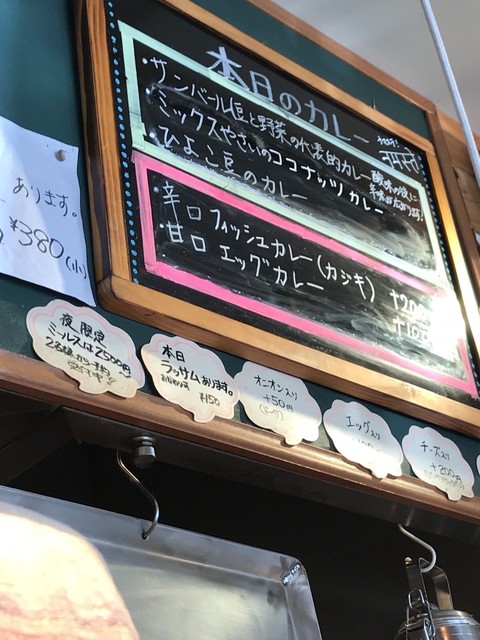 本日のカレー
नमस्ते
・サンバール(豆と野菜の代表的カレー
・ミックスやさいのココナッツカレー
・ひよこ豆のカレー
・辛口 フィッシュカレー(カジキ)
・甘口 エッグカレー
あります。
¥380(小)
夜限定
ミールスは2500円
2名様から
本日
ラッサムあります。
¥150
オニオン入り
+50円
エッグ入り
チーズ入り
+200円